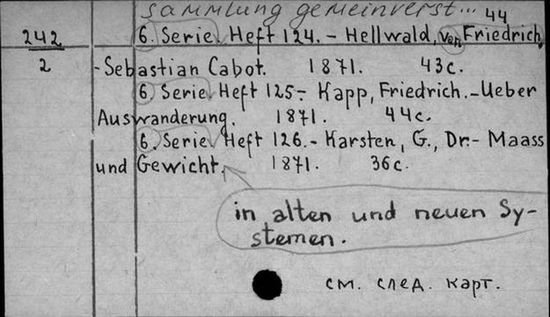 Sammlung gemeinverst... 44
242 6. Serie. Heft 124. - Hellwald, von Friedrich,
2 - Sebastian Cabot. 1871. 43c.
6. Serie. Heft 125. - Kapp, Friedrich. - Ueber
Auswanderung. 1871. 44c.
6. Serie. Heft 126. - Karsten, G., Dr. - Maass
und Gewicht. 1871. 36c.
in alten und neuen Sy-
stemen.
см. след. карт.